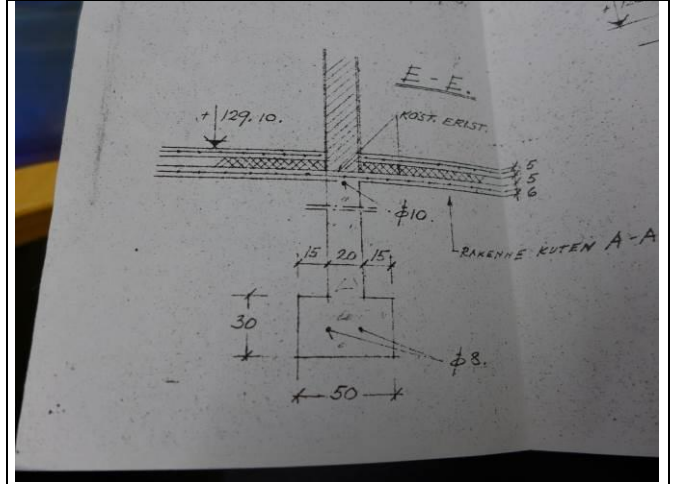 E-E.
+ 129.10.
KOST. ERIST.
5
5
6
φ10.
RAKENNE KUTEN A-A
15 20 15
30
φ8.
50